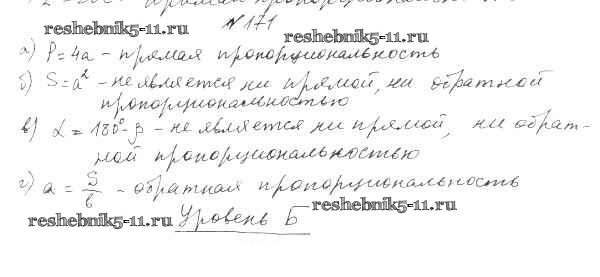 reshebnik5-11.ru
№ 171
reshebnik5-11.ru
а) P = 4a - прямая пропорциональность
б) S = a² - не является ни прямой, ни обратной
пропорциональностью
в) α = 180° - β - не является ни прямой, ни обрат-
ной пропорциональностью
г) a = S/b - обратная пропорциональность
reshebnik5-11.ru
reshebnik5-11.ru
Уровень Б